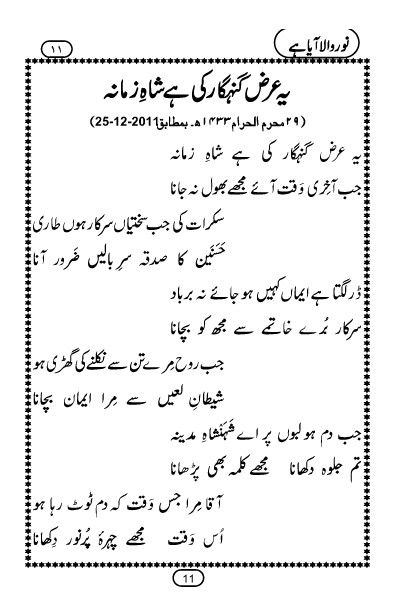 نور والا آیا ہے
۱۱
یہ عرض گنہگار کی ہے شاہِ زمانہ
(۲۹ محرم الحرام ۱۴۳۳ھ۔ بمطابق 25-12-2011)
یہ عرض گنہگار کی ہے شاہِ زمانہ
جب آخِری وَقت آئے مجھے بھول نہ جانا
سکرات کی جب سختیاں سرکار ہوں طاری
حَسَنَین کا صدقہ سرِ بالیں ضَرور آنا
ڈر لگتا ہے ایماں کہیں ہو جائے نہ برباد
سرکار بُرے خاتمے سے مجھ کو بچانا
جب روح مِرے تن سے نکلنے کی گھڑی ہو
شیطانِ لعیں سے مِرا ایمان بچانا
جب دم ہو لبوں پر اے شَہَنشاہِ مدینہ
تم جلوہ دکھانا مجھے کلمہ بھی پڑھانا
آقا مِرا جس وَقت کہ دم ٹوٹ رہا ہو
اُس وَقت مجھے چہرۂ پُرنور دِکھانا
11